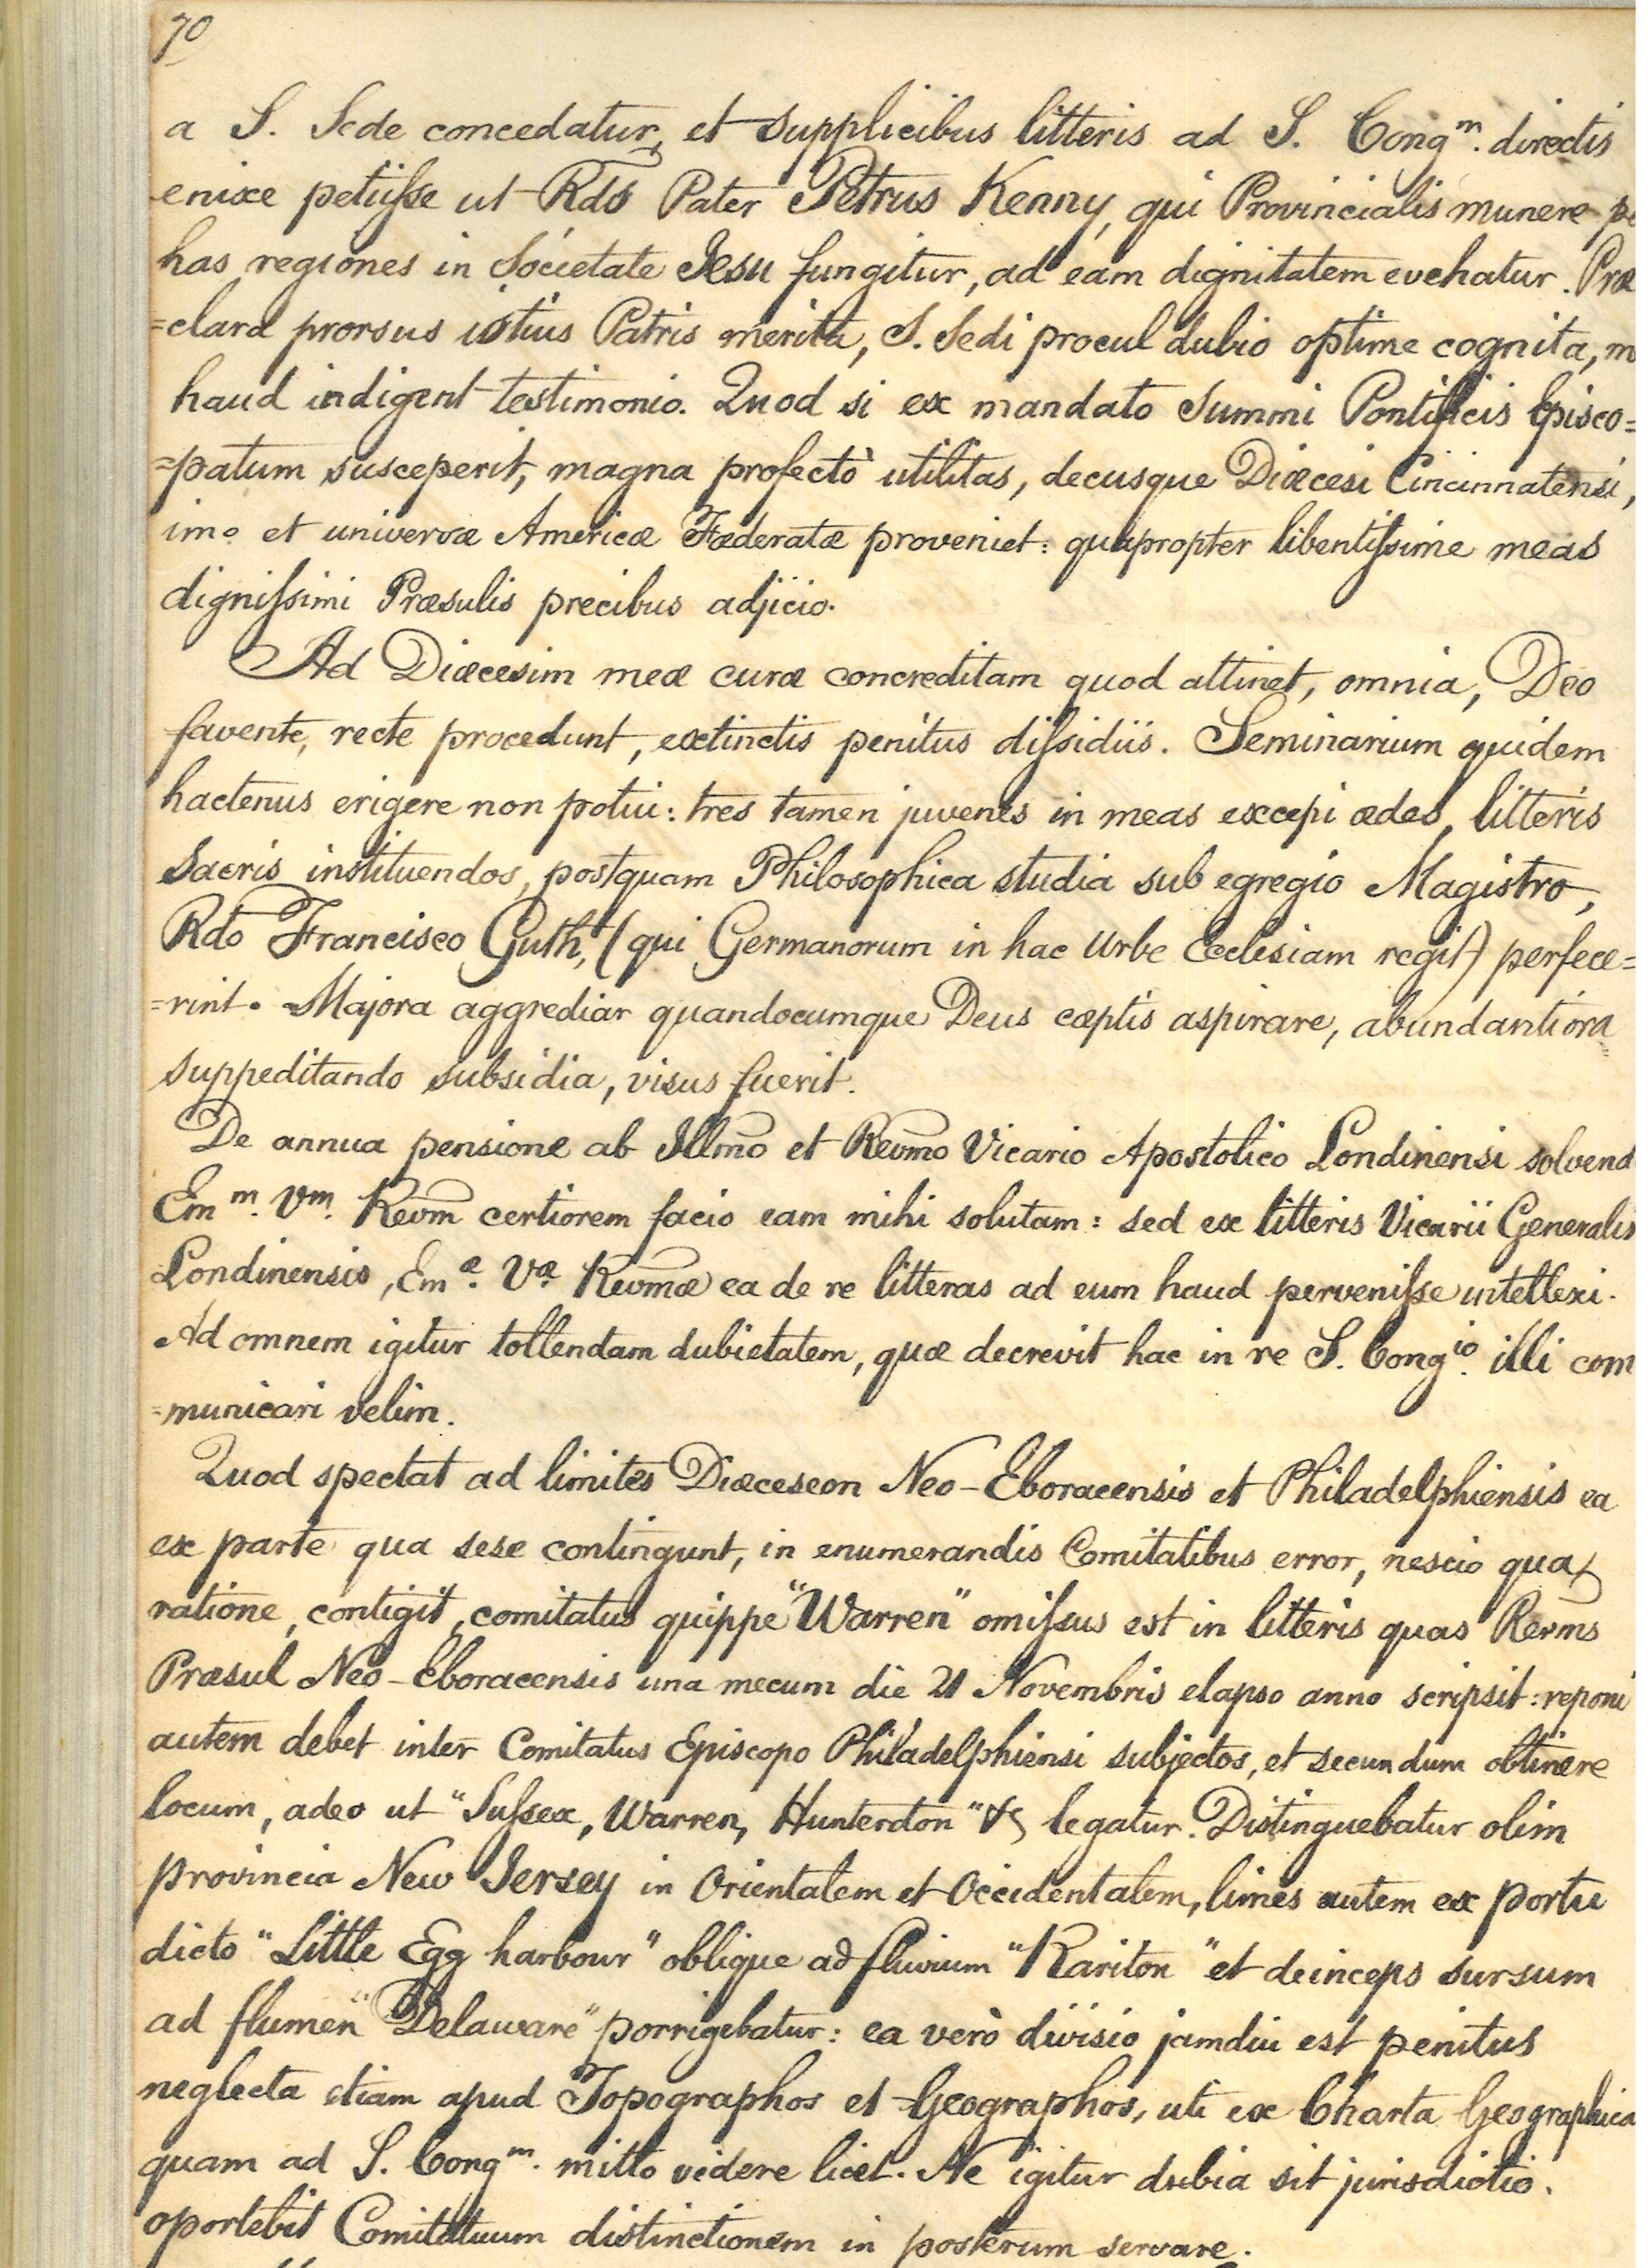 70
a S. Sede concedatur, et supplicibus litteris ad S. Congm. directis
enixe petiisse ut Rds Pater Petrus Kenny, qui Provincialis munere pe
has regiones in Societate Jesu fungitur, ad eam dignitatem evehatur. Præ
=clara prorsus istius Patris merita, S. Sedi procul dubio optime cognita, m
haud indigent testimonio. Quod si ex mandato Summi Pontificis Episco=
=patum susceperit, magna profectò utilitas, decusque Diœcesi Cincinnatensi,
imo et universæ Americæ Fœderatæ proveniet: quapropter libentissime meas
dignissimi Præsulis precibus adjicio.
Ad Diœcesim meæ curæ concreditam quod attinet, omnia, Deo
favente, recte procedunt, extinctis penitus dissidiis. Seminarium quidem
hactenus erigere non potui: tres tamen juvenes in meas excepi ædes, litteris
Sacris instituendos, postquam Philosophica studia sub egregio Magistro,
Rdo Francisco Guth, (qui Germanorum in hac Urbe Ecclesiam regit) perfece=
=rint. Majora aggrediar quandocumque Deus cœptis aspirare, abundantiora
suppeditando subsidia, visus fuerit.
De annua pensione ab Illmo et Revmo Vicario Apostolico Londinensi solvend
Emm. Vm. Revm certiorem facio eam mihi solutam: sed ex litteris Vicarii Generalis
Londinensis, Emæ. Væ Revmæ ea de re litteras ad eum haud pervenisse intellexi.
Ad omnem igitur tollendam dubietatem, quæ decrevit hac in re S. Congio. illi com
=municari velim.
Quod spectat ad limites Diœceseon Neo-Eboracensis et Philadelphiensis ea
ex parte qua sese contingunt, in enumerandis Comitatibus error, nescio qua
ratione, contigit, comitatus quippe "Warren" omissus est in litteris quas Revms
Præsul Neo-Eboracensis una mecum die 21 Novembris elapso anno scripsit: reponi
autem debet inter Comitatus Episcopo Philadelphiensi subjectos, et secundum obtinere
locum, adeo ut "Sussex, Warren, Hunterdon" &c legatur. Distinguebatur olim
provincia New Jersey in Orientalem et Occidentalem, limes autem ex portu
dicto "Little Egg harbour" oblique ad fluvium "Rariton" et deinceps sursum
ad flumen "Delaware" porrigebatur: ea verò divisio jamdiu est penitus
neglecta etiam apud Topographos et Geographos, uti ex Charta Geographica
quam ad S. Congm. mitto videre licet. Ne igitur dubia sit jurisdictio.
oportebit Comitatuum distinctionem in posterum servare.